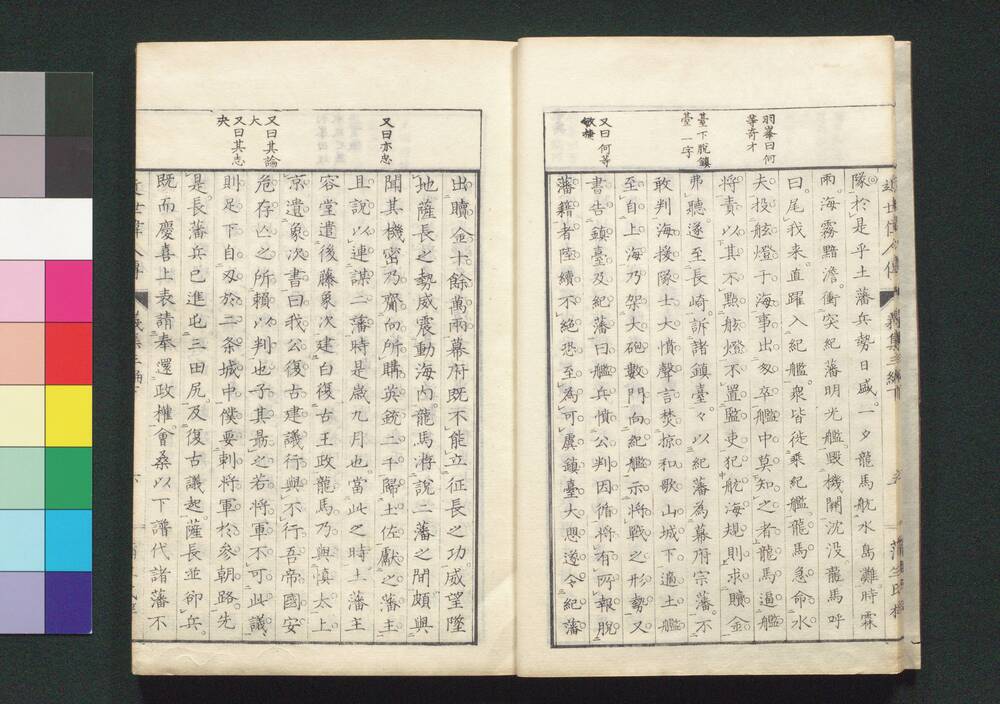 羽峯曰何
等奇才
臺下脫鎮
臺一字
又曰何等
敏捷
隊於是乎土藩兵勢日盛一夕龍馬航水島灘時霖
雨海霧黯澹衝突紀藩明光艦毀機關沈没龍馬呼
曰尾我来直躍入紀艦衆皆徒乘紀艦龍馬急命水
夫投舷燈于海事出匆卒艦中莫知之者龍馬逼艦
將責以其不點舷燈不置監吏犯航海規則求贖金
弗聽遂至長崎訴諸鎮臺々以紀藩為幕府宗藩不
敢判海援隊士大憤聲言焚掠和歌山城下適土艦
至自上海乃架大砲數門向紀艦示將戰之形勢又
書告鎮臺及紀藩曰艦兵憤公判因循將有所報脫
藩籍者陸續不絕恐至為可虞鎮臺大愳遂令紀藩
又曰亦忠
又曰其論
大
又曰其志
央
出贖金十餘萬兩幕府既不能立征長之功威望墜
地薩長之勢威震動海内龍馬㳺說二藩之間頗與
聞其機密乃齎向所購英銃二千歸土佐獻之藩主
且說以連謀二藩時是歲九月也當此之時土藩主
容堂遣後藤象次建白復古王政龍馬乃與慎太上
京遺象次書曰我公復古建議行與不行吾帝國安
危存亾之所頼以判也子其勗之若將軍不可此議
則足下自刄於二条城中僕要刺將軍於參朝路先
是長藩兵已進屯三田尻及復古議起薩長並卻兵
既而慶喜上表請奉還政權會桑以下譜代諸藩不